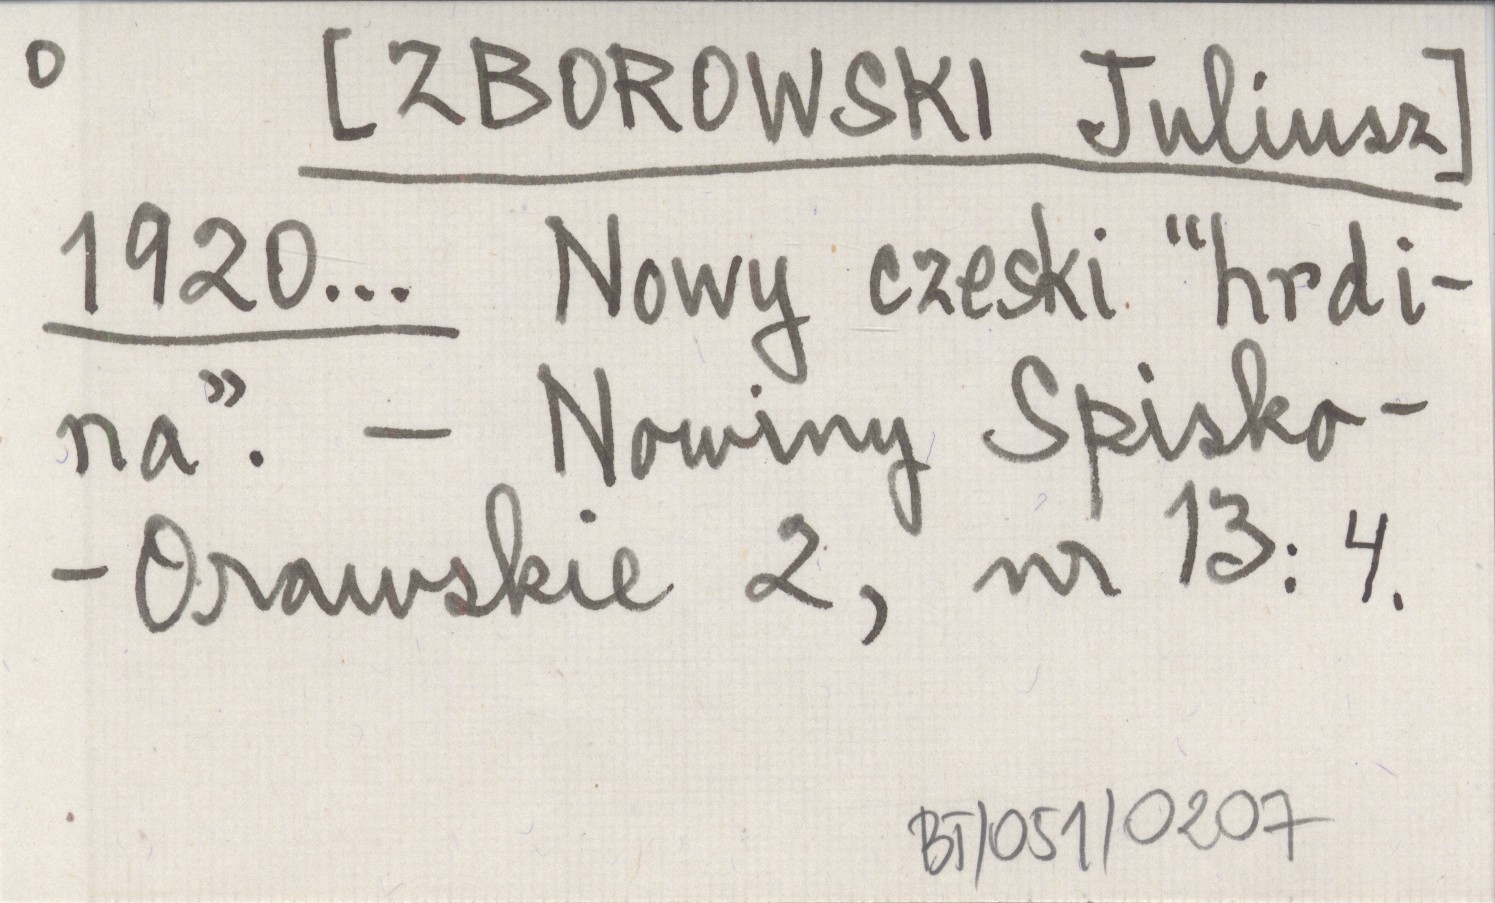 o [ZBOROWSKI Juliusz]
1920... Nowy czeski “hrdi-
na”. — Nowiny Spisko-
-Orawskie 2, nr 13: 4.
BT/051/0207